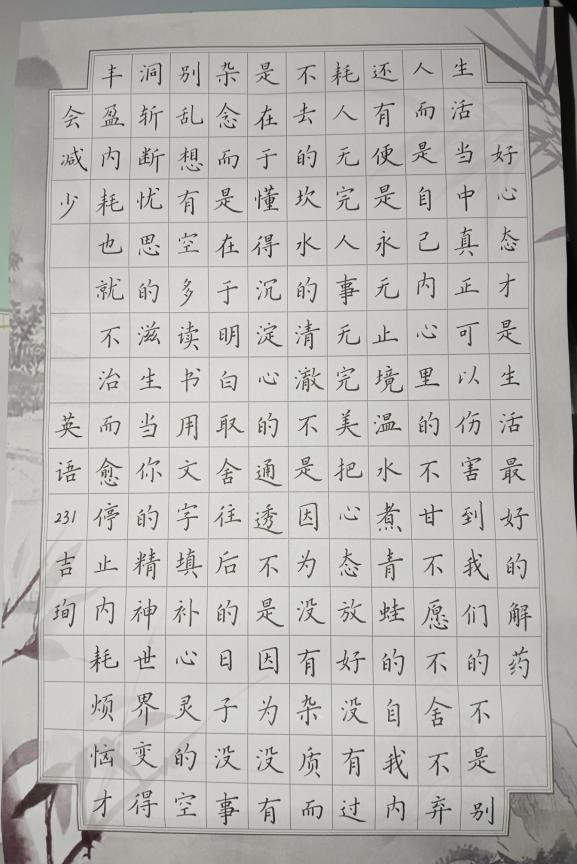 好心态才是生活最好的解药
生活当中真正可以伤害到我们的不是别
人而是自己内心里的不甘不愿不舍不弃
还有便是永无止境温水煮青蛙的自我内
耗人无完人事无完美把心态放好没有过
不去的坎水的清澈不是因为没有杂质而
是在于懂得沉淀心的通透不是因为没有
杂念而是在于明白取舍往后的日子没事
别乱想有空多读书用文字填补心灵的空
洞斩断忧思的滋生当你的精神世界变得
丰盈内耗也就不治而愈停止内耗烦恼才
会减少 英语231吉珣